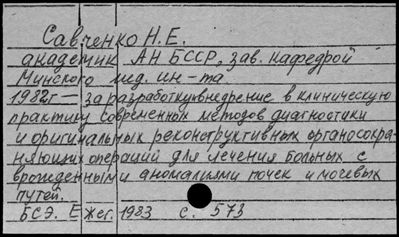 Савченко Н.Е.
академик АН БССР, зав. кафедрой
Минского мед. ин-та
1982г — за разработку и внедрение в клиническую
практику современных методов диагностики
и оригинальных реконструктивных органосохра-
няющих операций для лечения больных с
врожденными аномалиями почек и мочевых
путей.
БСЭ. Ежег. 1983 с. 573